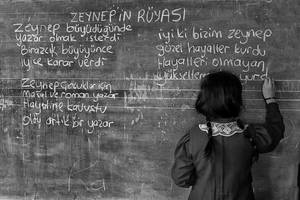 ZEYNEP'İN RÜYASI
Zeynep büyüdüğünde
yazar olmak isterdi
Birazcık büyüyünce
iyice karar verdi
Zeynep çocuklar için
Masal ve roman yazar
Hayaline kavuştu
Oldu artık bir yazar
iyi ki bizim zeynep
güzel hayaller kurdu
Hayalleri olmayan
yükselemez